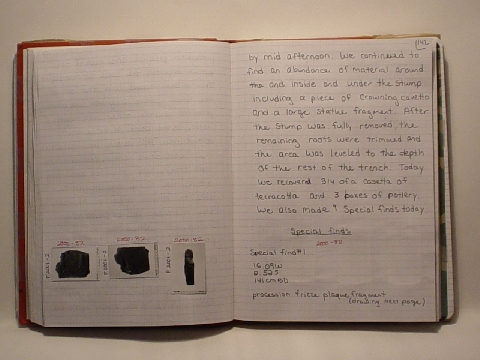 2000-82
2000-82
2000-82
142
by mid afternoon. We continued to
find an abundance of material around
the and inside and under the stump
including a piece of crowning cavetto
and a large statue fragment. After
the stump was fully removed, the
remaining roots were trimmed and
the area was leveled to the depth
of the rest of the trench. Today
we recovered 3/4 of a casetta of
terracotta and 3 boxes of pottery.
We also made 9 Special finds today
Special finds
2000-82
Special find #1
procession frieze plaque fragment
(drawing next page)